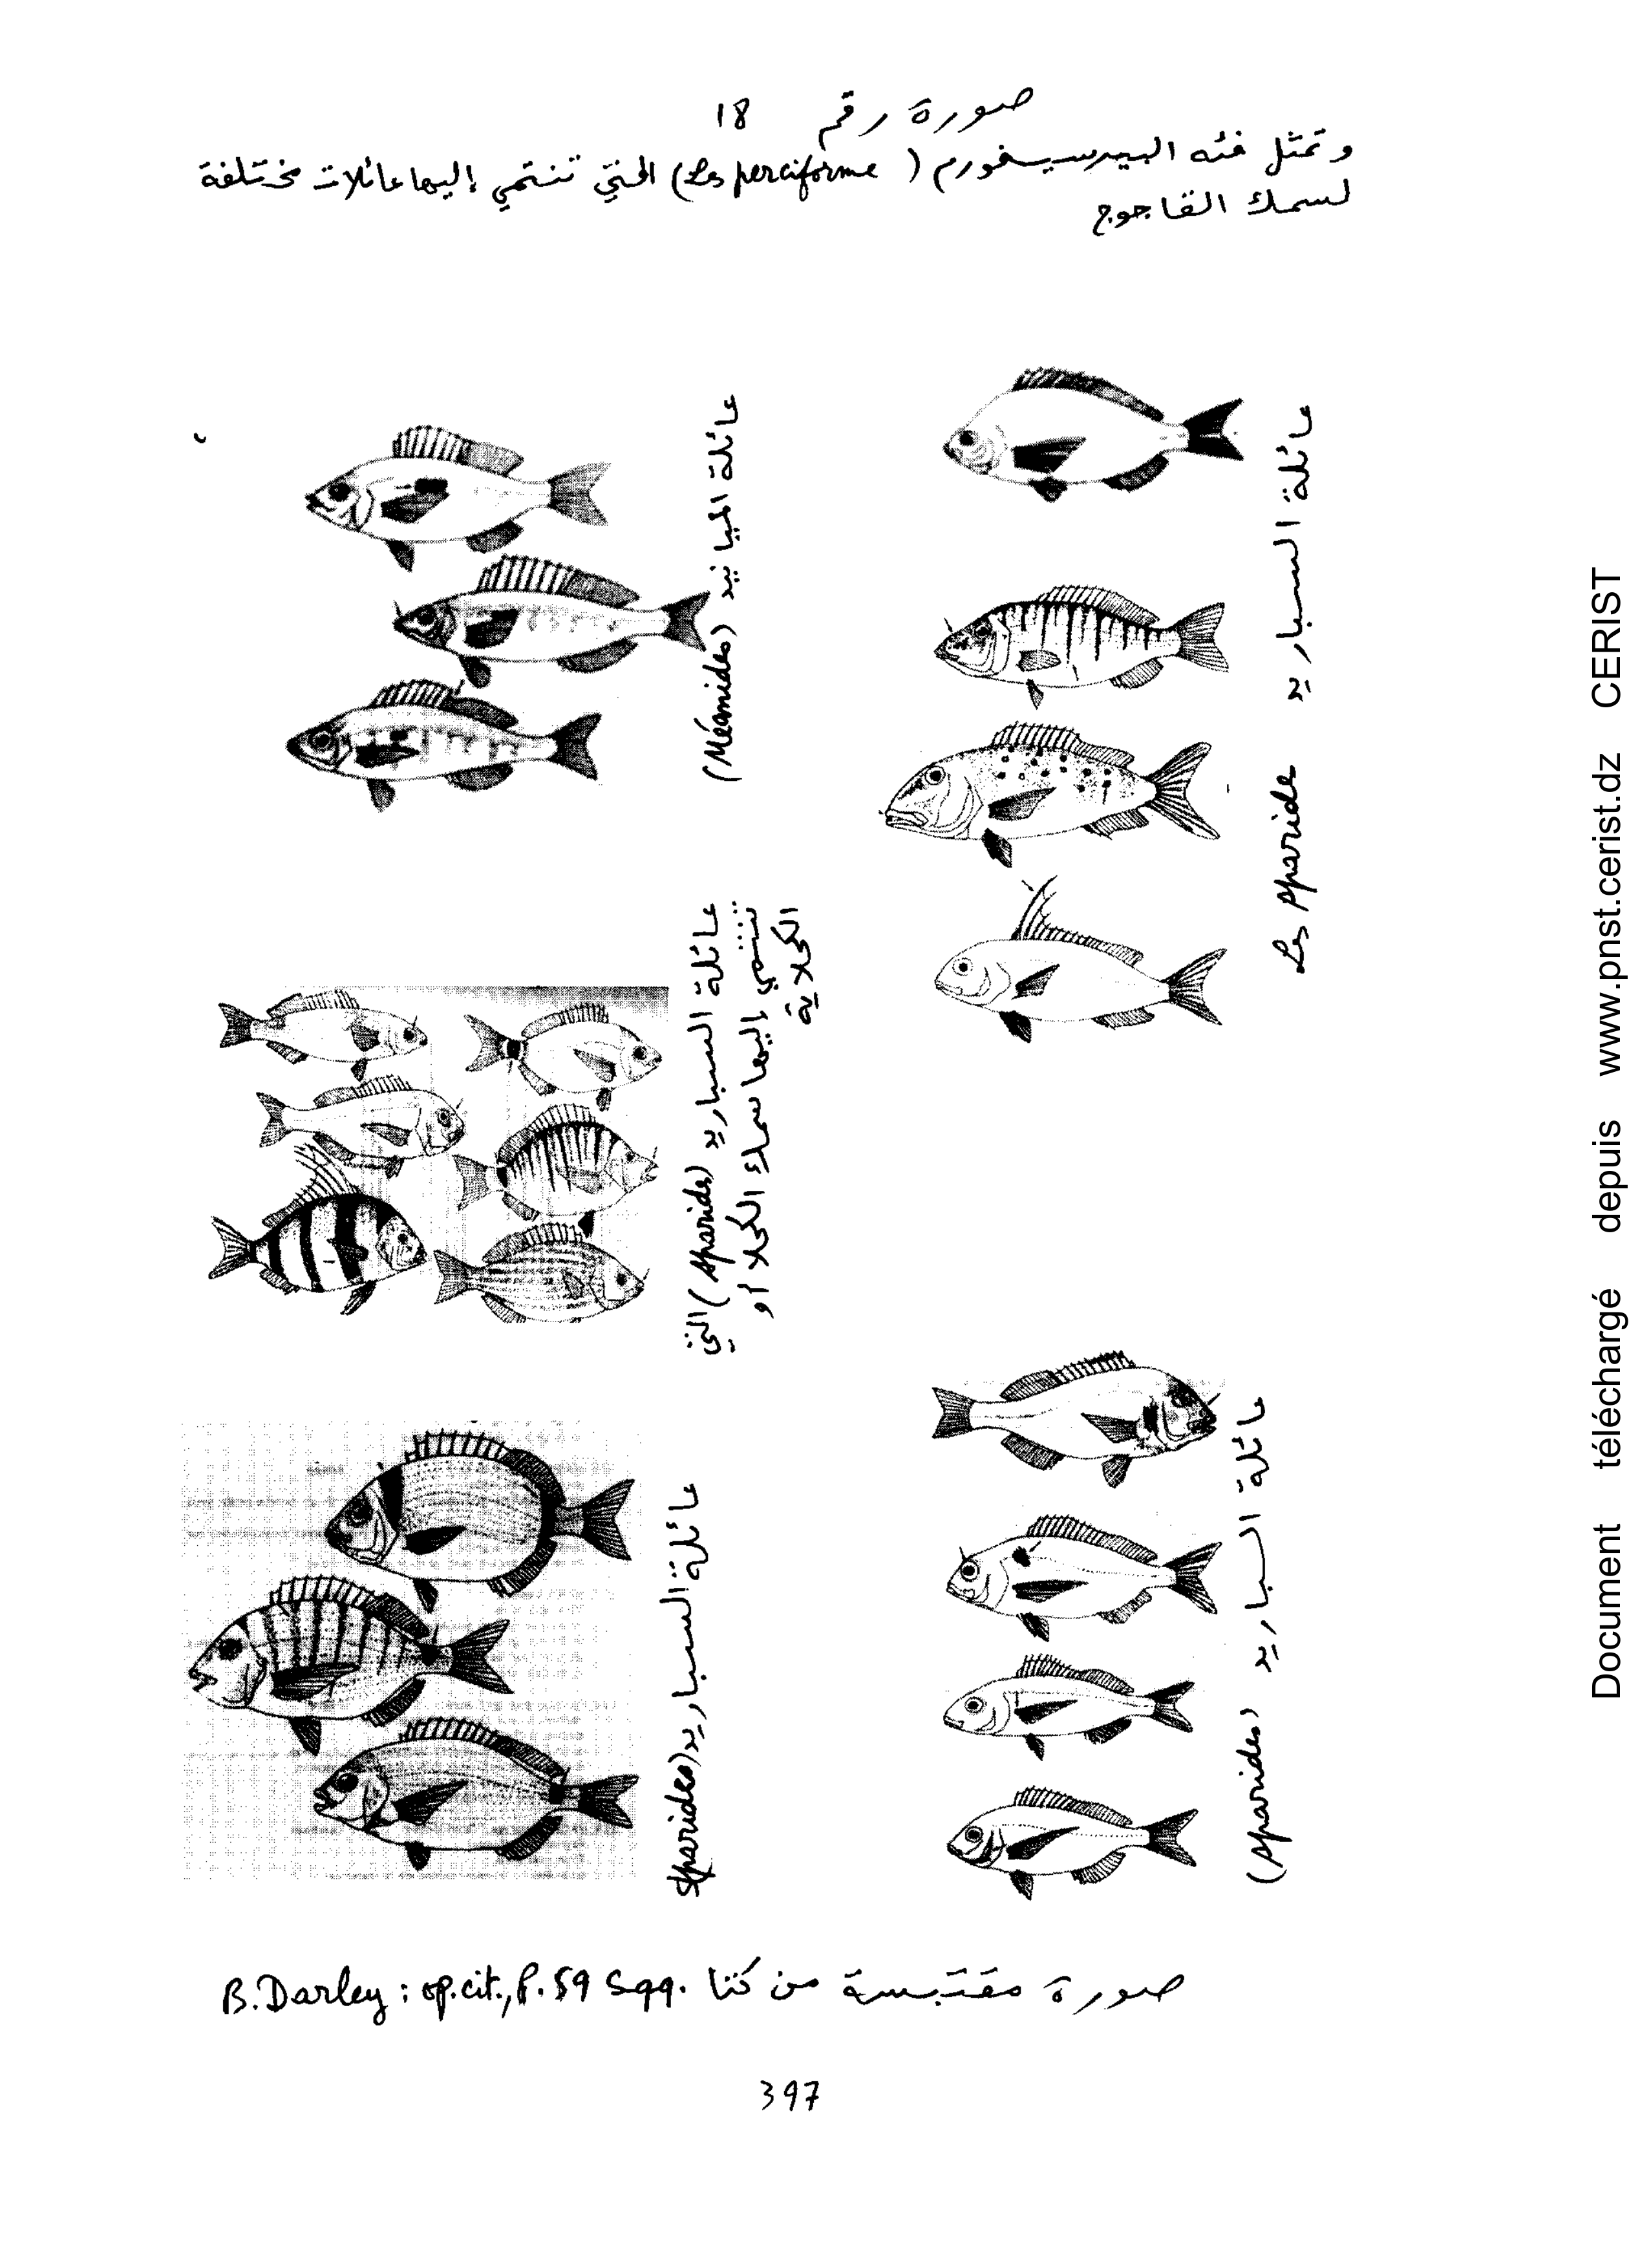 صورة رقم 18
وتمثل فئه البيرسيفورم (Les perciforme) التي تنتمي إليها عائلات مختلفة
لسمك الفاجوج
عائلة الميانيد (Méanides)
عائلة السباريد Les sparide
عائلة السباريد (sparides) التي
تنتمي إليها سمك الكحلا أو
الكحلاية
عائلة السباريد (Sparides)
عائلة السباريد (sparides)
صورة مقتبسة من كتا B.Darley : op.cit., P.59 Sqq.
397
Document téléchargé depuis www.pnst.cerist.dz CERIST